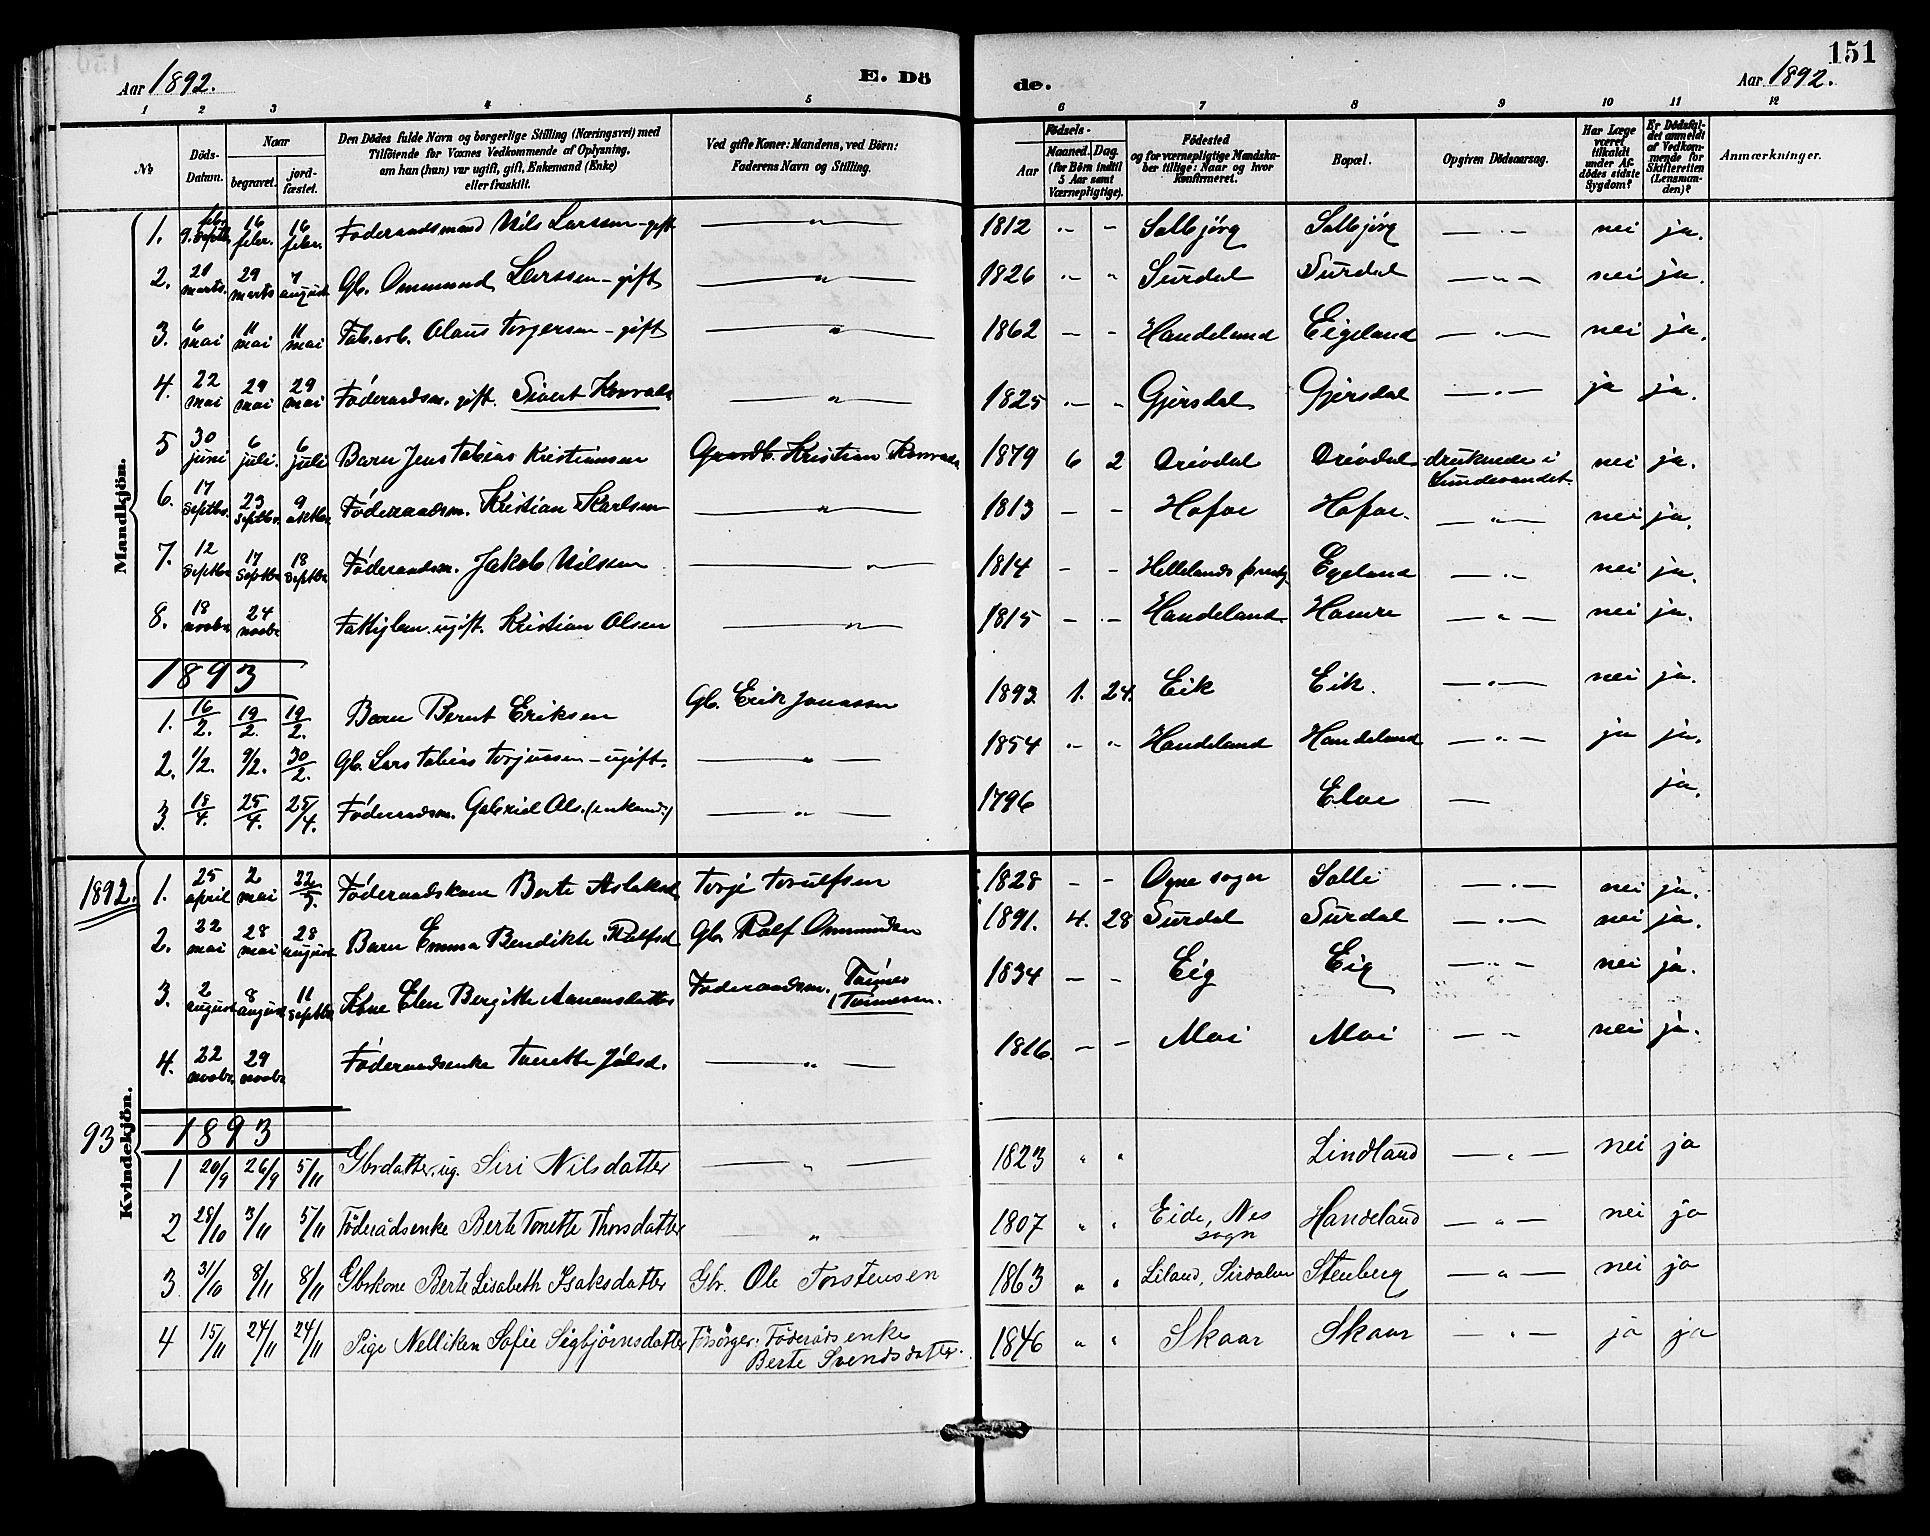 151
Aar 1892. E. Dö de. Aar 1892.
1 2 3 4 5 6 7 8 9 10 11 12
No Döds-Datum. Naar begravet. jord-fæstet. Den Dödes fulde Navn og borgerlige Stilling (Næringsvei) med Tilföiende for Voxnes Vedkommende af Oplysning, om han (hun) var ugift, gift, Enkemand (Enke) eller fraskilt. Ved gifte Koner: Mandens, ved Börn: Faderens Navn og Stilling. Födsels- Aar Maaned. Dag. (for Börn indtil 5 Aar samt Værnepligtige). Födested og for værnepligtige Mandska-ber tillige: Naar og hvor Konfirmeret. Bopæl. Opgiven Dödsaarsag. Har Læge været tilkaldt under Af-dödes sidste Sygdom? Er Dödsfal-det anmeldt af Vedkom-mende for Skifteretten (Lensman-den)? Anmærkninger.
Mandkjön.
1. 9. febr. 16 febr. 16 febr. Föderaadsmand Nils Larssen - gift — " — 1812 " - Salbjörg Salbjörg — " — nei ja.
2. 21 marts. 29 marts 7 august Gb. Ommund Larssen - gift — " — 1826 " " Surdal Surdal — " — nei ja.
3. 6 mai 11 mai 11 mai Fab.arb. Olaus Torgersen - gift — " — 1862 - - Handeland Eigeland — " — nei ja.
4. 22 mai 29 mai 29 mai Föderaadsm. gift. Sivert — " — 1825 " " Gjersdal Gjersdal — " — ja ja.
5 30 juni 6 juli. 6 juli Barn Jens Tobias Kristiansen Gaardb. Kristian 1879 6 2 Drivdal Drivdal druknede i Lundevandet. nei ja.
6. 17 septbr. 23 septbr. 9 oktbr. Föderaadsm. Kristian Karlsen — " — 1813 - - Hofoe Hofoe. — " — nei ja.
7. 12 septbr 17 septbr 18 septbr Föderaadsm. Jakob Nilsen — " — 1814 - - Hellelands Egeland — " — nei ja.
8. 18 novbr 24 novbr Fattiglem. ugift. Kristian Olsen — " — 1815 - - Handeland Hamre — " — nei ja.
1893
1. 16/2. 19/2. 19/2. Barn Bernt Eriksen Gb. Erik Jonassen 1893 1. 24. Eik Eik. — " — nei ja.
2. 1/2. 9/2. 30/2. Gb. Lars Tobias Torjussen - ugift. — " — 1854 " " Handeland Handeland — " — ja ja.
3. 18/4. 25/4. 25/4. Föderaadsm. Gabriel Ols. (enkemd.) — " — 1796 Eloe — ja.
Kvindekjön.
1892. 1. 25 april 2 mai 22/5. Föderaadskone Berte Aslaksd. Torje Torulfsen 1828 - - Ogne sogn Salli — " — nei ja.
2. 22 mai 28 mai 28 august Barn Emma Bendikte Rolfsd Gb. Rolf Ommundsen 1891. 4. 28 Surdal Surdal — " — nei ja.
3. 2 august 8 august 11 septbr Kone Elen Bergitte Aanensdatter Föderaadsm. Tönnes Tönnesen. 1834 - - Eig Eig — " — nei ja.
4. 22 novbr 29 novbr Föderaadsenke Tonette Jölsd. — " — 1816. - - Moi Moi — " nei ja.
93 1893
1 20/9 26/9 5/11 Gbrdatter, ug. Siri Nilsdatter — " — 1823 " " Lindland — " — nei ja
2 28/10 3/11 5/11 Föderådsenke Berte Tonette Thorsdatter — " 1807 " " Eide, Nes sogn Handeland — " — nei ja
3 31/10 8/11 8/11 Gbrkone Berte Lisabeth Isaksdatter Gbr. Ole Torstensen 1863 " " Liland, Sirdalen Stenberg — " — nei ja
4 15/11 24/11 24/11 Pige Nelliken Sofie Sigbjörnsdatter Försörger: Föderådsenke Berte Svendsdatter. 1846 " " Skaar Skaar — " — ja ja